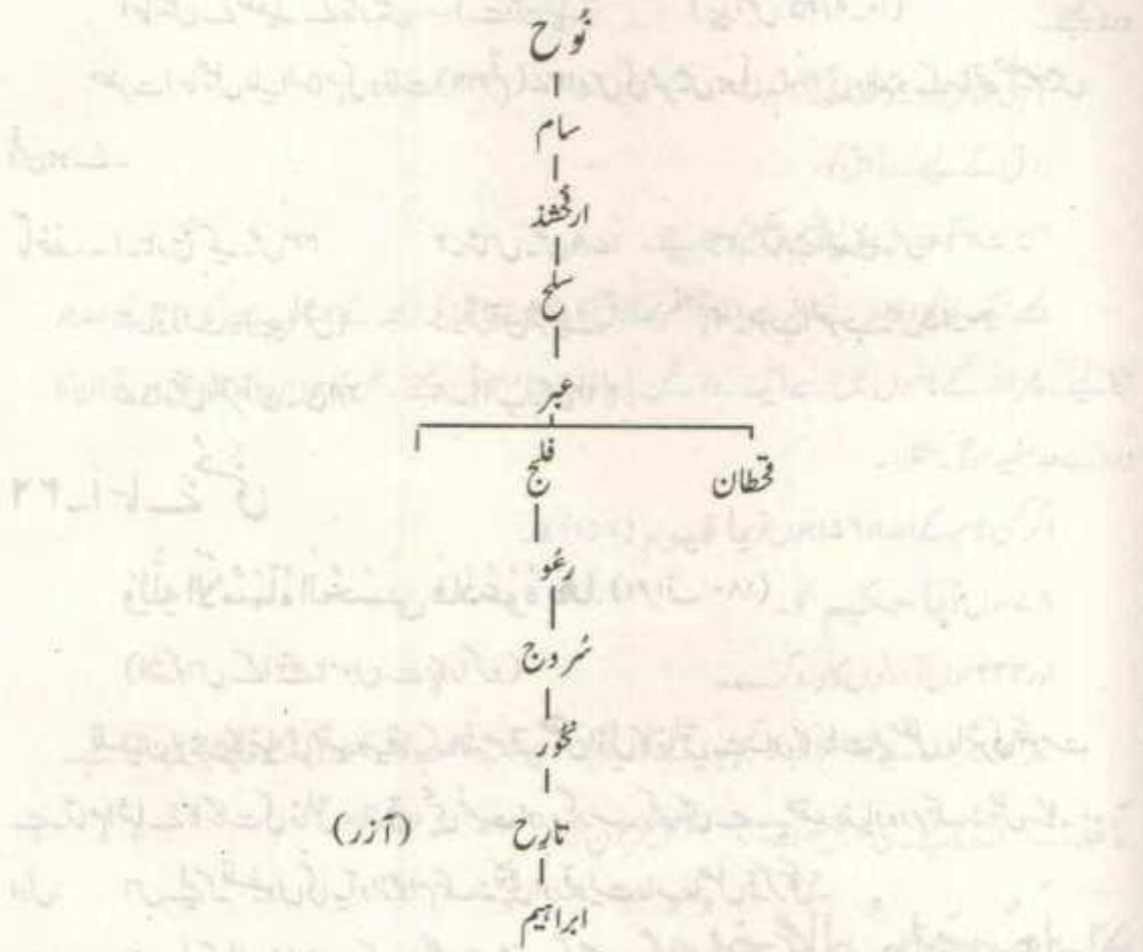 نُوح
سام
ارفخشذ
سلح
عبر
قحطان فلج
رعُو
سُروج
نحُور
تارح (آزر)
ابراہیم